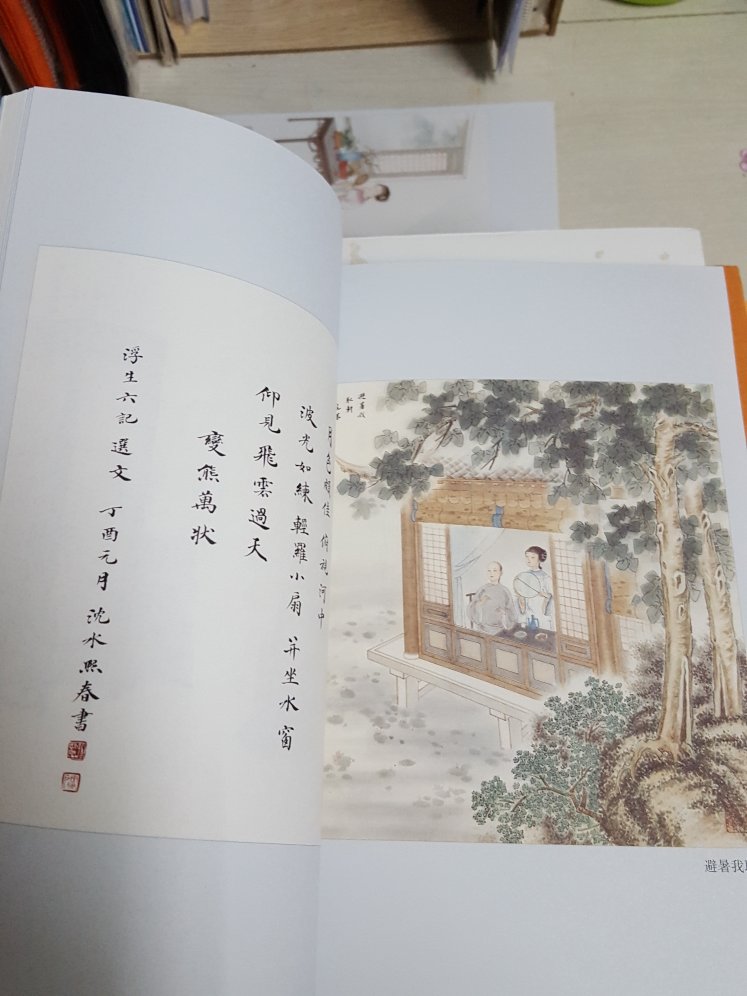 月色頗佳 俯視河中
波光如練 輕羅小扇 並坐水窗
仰見飛雲過天
變熊萬狀
浮生六記 選文 丁酉元月 沈水熙春書
避暑我